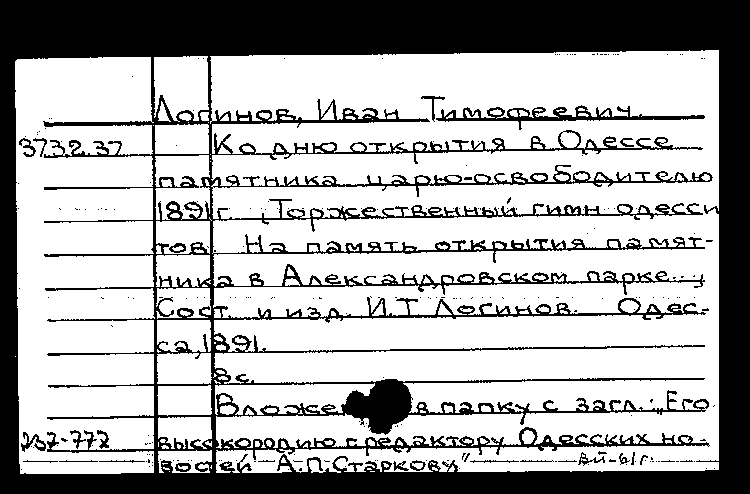 Логинов, Иван Тимофеевич.
3732.37 Ко дню открытия в Одессе
памятника царю-освободителю
1891 г. „Торжественный гимн одесси
тов. На память открытия памят-
ника в Александровском парке...,
Сост. и изд. И.Т. Логинов. Одес-
са, 1891.
8с.
в папку с загл.: „Его
237-772 высокородию г. редактору Одесских но-
востей А.П. Старкову"